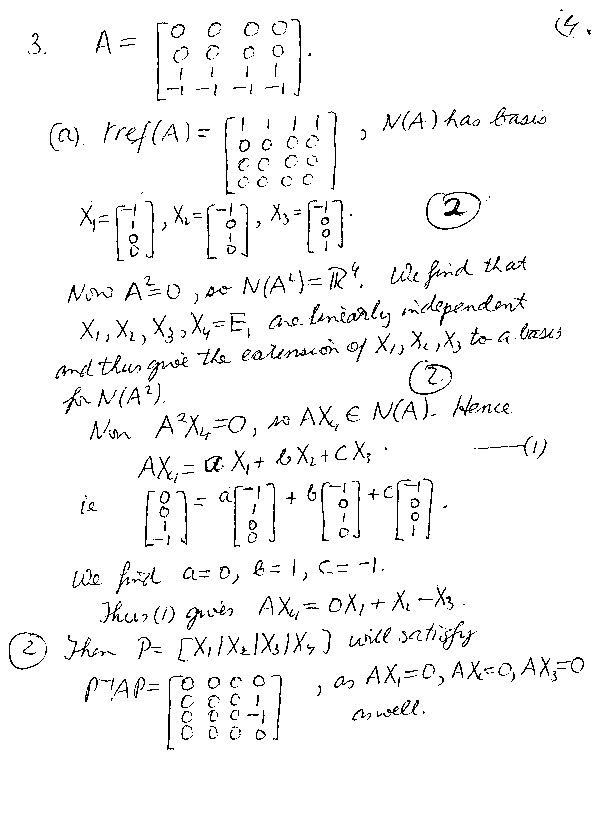 i4.
3. A = [0 0 0 0; 0 0 0 0; 1 1 1 1; -1 -1 -1 -1].
(a). rref(A) = [1 1 1 1; 0 0 0 0; 0 0 0 0; 0 0 0 0], N(A) has basis
X₁=[-1; 1; 0; 0], X₂=[-1; 0; 1; 0], X₃=[-1; 0; 0; 1]. (2)
Now A²=0, so N(A²)=ℝ⁴. We find that
X₁, X₂, X₃, X₄=E₁ are linearly independent
and thus give the extension of X₁, X₂, X₃ to a basis
for N(A²). (2.)
Now A²X₄=0, so AX₄ ∈ N(A). Hence
AX₄ = a X₁ + b X₂ + c X₃. ——(1)
ie [0; 0; 1; -1] = a[-1; 1; 0; 0] + b[-1; 0; 1; 0] + c[-1; 0; 0; 1].
We find a=0, b=1, c=-1.
Thus (1) gives AX₄ = 0X₁ + X₂ - X₃.
(2) Then P= [X₁|X₂|X₃|X₄] will satisfy
P⁻¹AP = [0 0 0 0; 0 0 0 1; 0 0 0 -1; 0 0 0 0], as AX₁=0, AX₂=0, AX₃=0
as well.